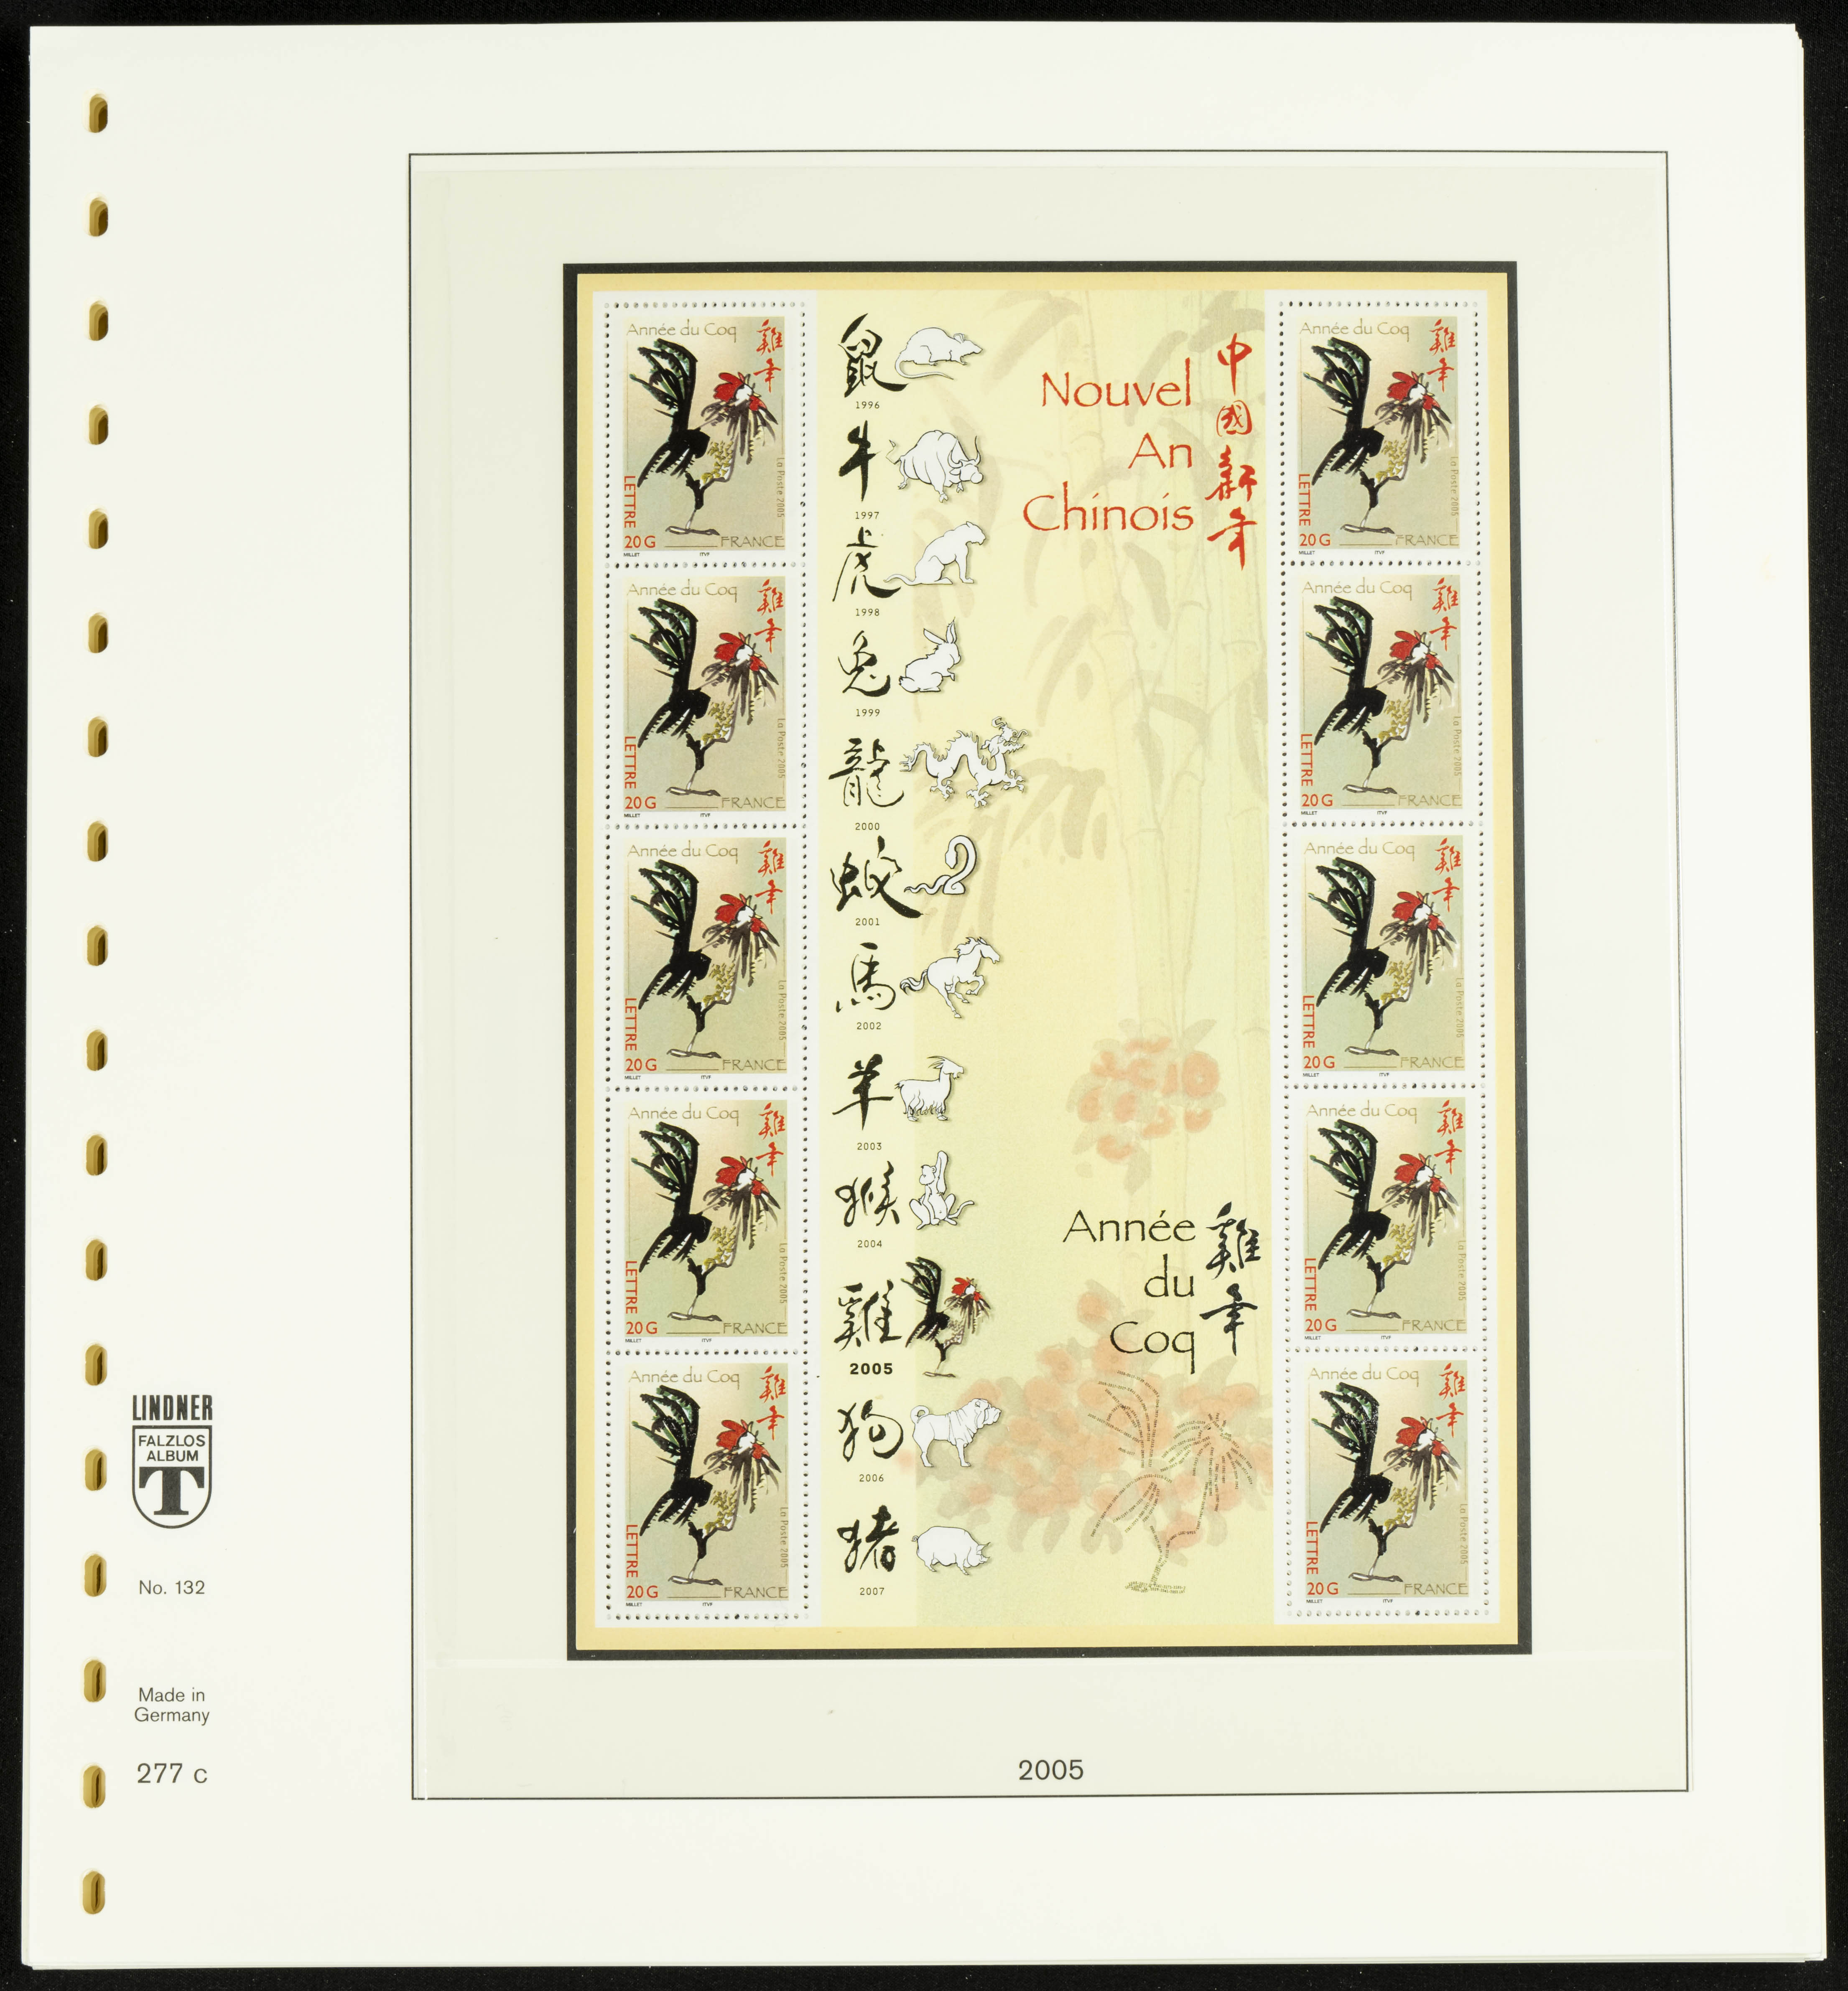 Année du Coq
雞年
LETTRE
20 G
FRANCE
La Poste 2005
MILLET
ITVF
Année du Coq
雞年
LETTRE
20 G
FRANCE
La Poste 2005
MILLET
ITVF
Année du Coq
雞年
LETTRE
20 G
FRANCE
La Poste 2005
MILLET
ITVF
Année du Coq
雞年
LETTRE
20 G
FRANCE
La Poste 2005
MILLET
ITVF
Année du Coq
雞年
LETTRE
20 G
FRANCE
La Poste 2005
MILLET
ITVF
鼠
1996
牛
1997
虎
1998
兔
1999
龍
2000
蛇
2001
馬
2002
羊
2003
猴
2004
雞
2005
狗
2006
猪
2007
Nouvel
An
Chinois
中國新年
Année
du
Coq
雞年
Année du Coq
雞年
LETTRE
20 G
FRANCE
La Poste 2005
MILLET
ITVF
Année du Coq
雞年
LETTRE
20 G
FRANCE
La Poste 2005
MILLET
ITVF
Année du Coq
雞年
LETTRE
20 G
FRANCE
La Poste 2005
MILLET
ITVF
Année du Coq
雞年
LETTRE
20 G
FRANCE
La Poste 2005
MILLET
ITVF
Année du Coq
雞年
LETTRE
20 G
FRANCE
La Poste 2005
MILLET
ITVF
LINDNER
FALZLOS
ALBUM
T
No. 132
Made in
Germany
277 c
2005